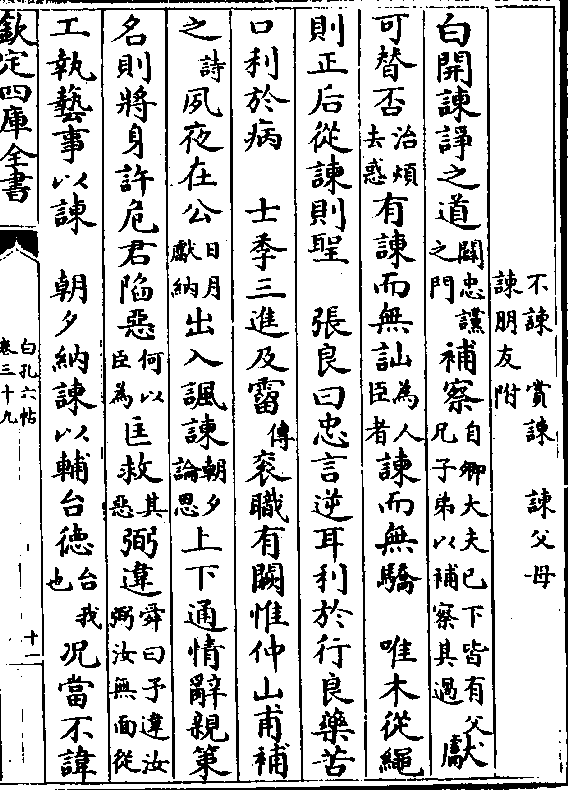 不諫　賞諫　諫父母
諫朋友附
白開諫諍之道闢忠讜之門補察自卿大夫已下皆有父兄子弟以補察其過獻
可替否治煩去惑有諫而無訕為人臣者諫而無驕　唯木從繩
則正后從諫則聖　張良曰忠言逆耳利於行良藥苦
口利於病　士季三進及霤傳衮職有闕惟仲山甫補
之詩夙夜在公日月獻納出入諷諫朝夕論思上下通情辭親策
名則將身許危君陷惡何以臣為匡救其惡弼違舜曰予違汝弼汝無面從
工執藝事以諫　朝夕納諫以輔台德台我也况當不諱
欽定四庫全書
白孔六帖
卷三十九
十一